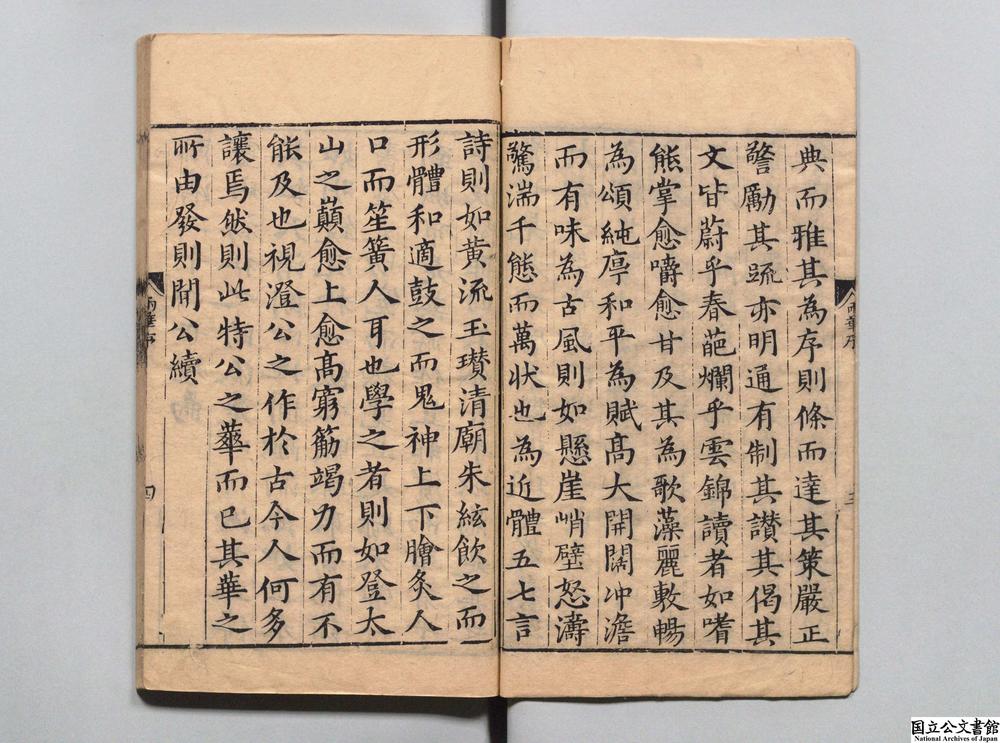 典而雅其為序則條而達其策嚴正
警勵其疏亦明通有制其讃其偈其
文皆蔚乎春葩爛乎雲錦讀者如嗜
熊掌愈嚼愈甘及其為歌藻麗敷暢
為頌純亭和平為賦髙大開闊冲澹
而有味為古風則如懸崖峭壁怒濤
驚湍千態而萬状也為近體五七言
詩則如黄流玉瓚清廟朱絃飲之而
形體和適鼓之而鬼神上下膾炙人
口而笙簧人耳也學之者則如登太
山之巔愈上愈髙窮筋竭力而有不
能及也視澄公之作於古今人何多
讓焉然則此特公之華而已其華之
所由發則聞公續
雨華序
四
国立公文書館
National Archives of Japan